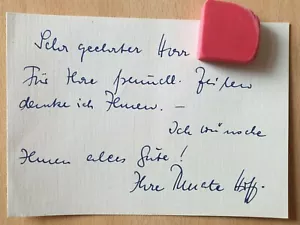 Sehr geehrter Herr
Für Ihre freundl. Zeilen
danke ich Ihnen. –
Ich wünsche
Ihnen alles Gute!
Ihre Renate Hoff.